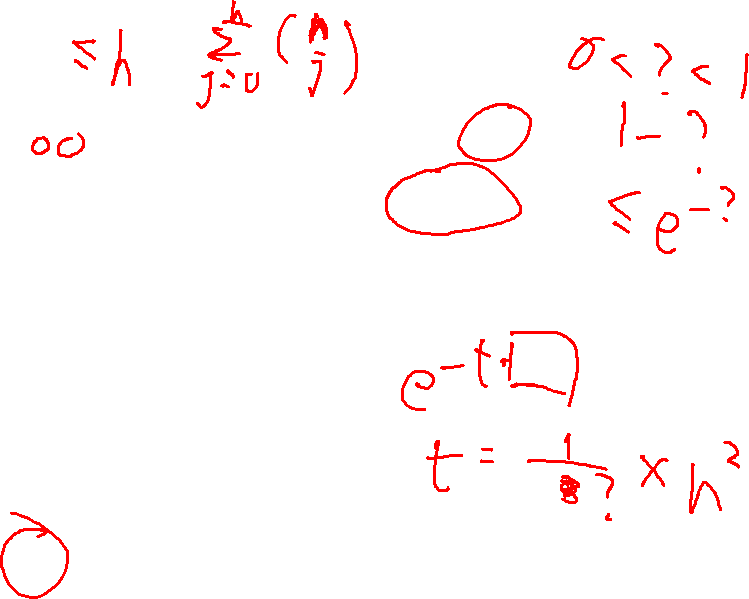 ≤ h   \sum_{j=0}^{h} \binom{n}{j}
0 < ? < 1
1 - ?
≤ e^{-?}
e^{-t+□}
t = \frac{1}{?} × h^2